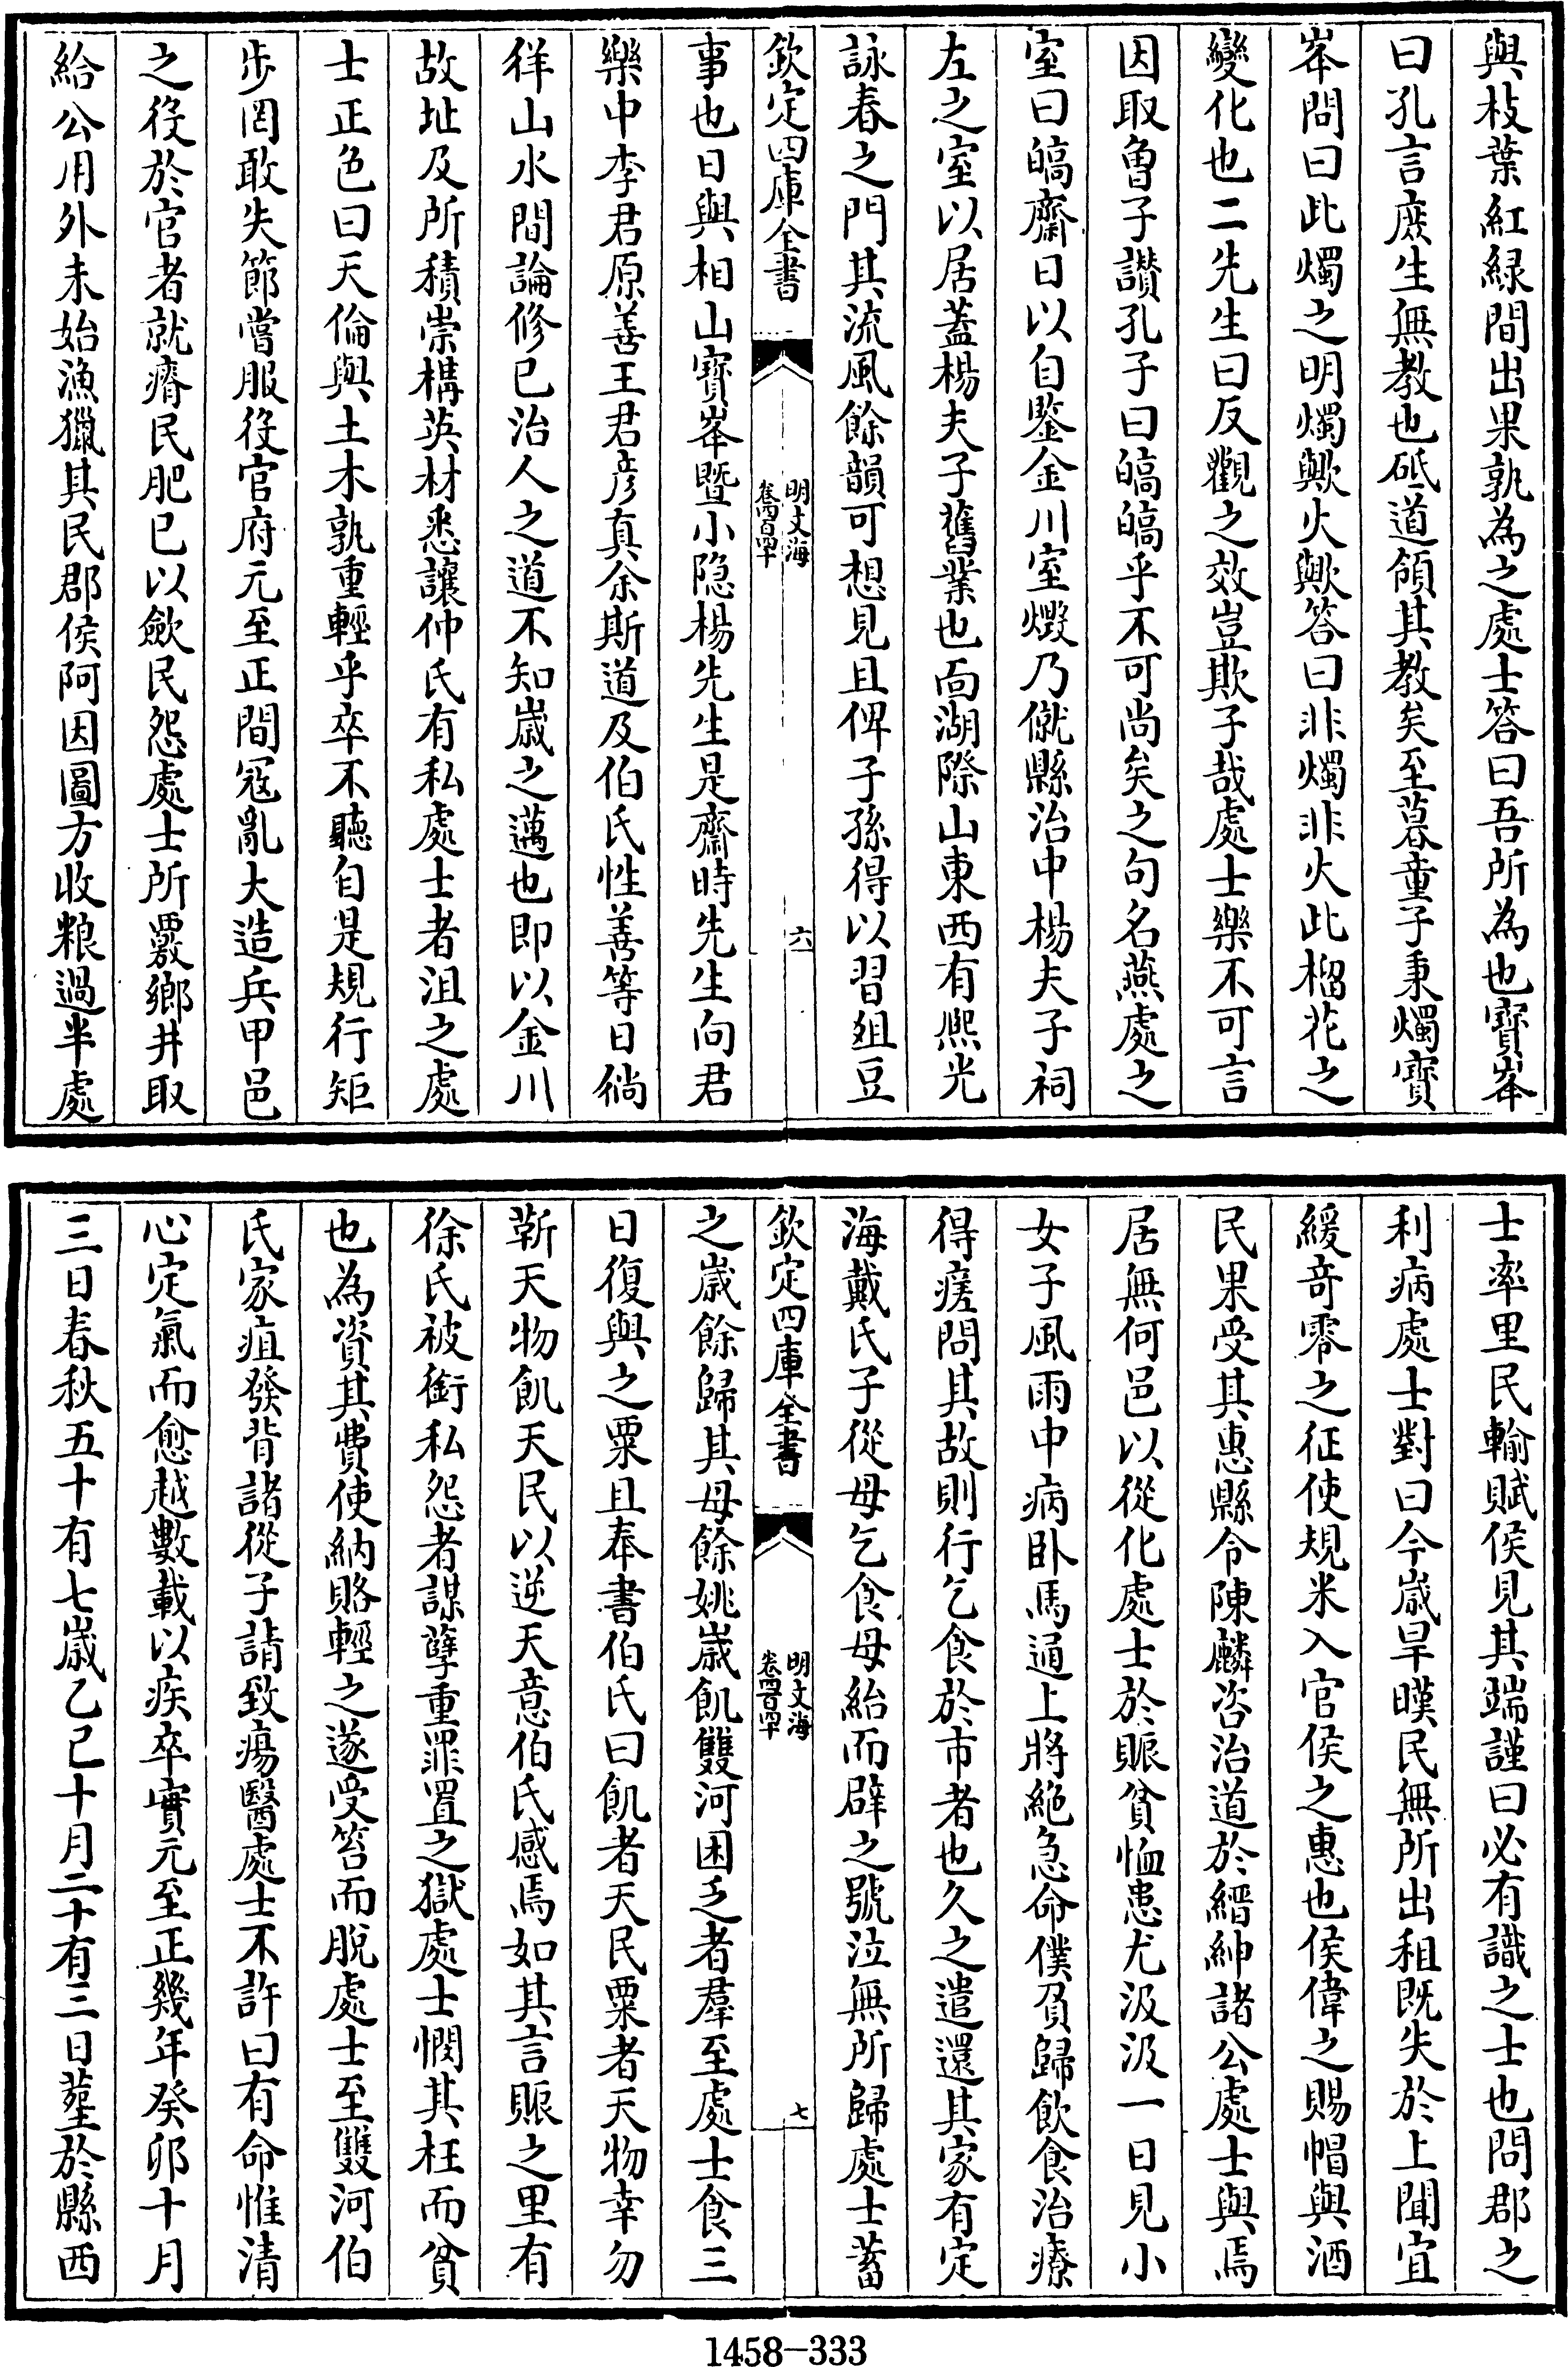 與枝葉紅緑間出果孰為之處士答曰吾所為也寳峯
曰孔言庶生無教也砥道領其教矣至暮童子秉燭寳
峯問曰此燭之明燭歟火歟答曰非燭非火此榴花之
變化也二先生曰反觀之效豈欺子哉處士樂不可言
因取魯子讃孔子曰皜皜乎不可尚矣之句名燕處之
室曰皜齋日以自鑒金川室燬乃僦縣治中楊夫子祠
左之室以居葢楊夫子舊業也面湖際山東西有熈光
詠春之門其流風餘韻可想見且俾子孫得以習俎豆
欽定四庫全書
明文海
卷四百四十
六
事也日與相山寳峯暨小隐楊先生是齋時先生向君
樂中李君原善王君彦真余斯道及伯氏性善等日徜
徉山水間論修已治人之道不知嵗之邁也即以金川
故址及所積崇構英材悉讓仲氏有私處士者沮之處
士正色曰天倫與土木孰重輕乎卒不聽自是規行矩
步罔敢失節嘗服役官府元至正間冦亂大造兵甲邑
之役於官者就瘠民肥已以歛民怨處士所覈鄉井取
給公用外未始漁獵其民郡侯阿因圖方收粮過半處
士率里民輸賦侯見其端謹曰必有識之士也問郡之
利病處士對曰今嵗旱暵民無所出租既失於上聞宜
緩竒零之征使規米入官侯之惠也侯偉之賜帽與酒
民果受其惠縣令陳麟咨治道於縉紳諸公處士與焉
居無何邑以從化處士於賑貧恤患尤汲汲一日見小
女子風雨中病卧馬通上將絶急命僕負歸飲食治療
得瘥問其故則行乞食於市者也久之遣還其家有定
海戴氏子從母乞食母紿而辟之號泣無所歸處士蓄
欽定四庫全書
明文海
卷四百四十
七
之嵗餘歸其母餘姚嵗飢雙河困乏者羣至處士食三
日復與之粟且奉書伯氏曰飢者天民粟者天物幸勿
靳天物飢天民以逆天意伯氏感焉如其言賑之里有
徐氏被銜私怨者謀孽重罪置之獄處士憫其枉而貧
也為資其費使納賂輕之遂受笞而脱處士至雙河伯
氏家疽發背諸從子請致瘍醫處士不許曰有命惟清
心定氣而愈越數載以疾卒實元至正幾年癸卯十月
三日春秋五十有七嵗乙已十月二十有三日塟於縣西
1458-333